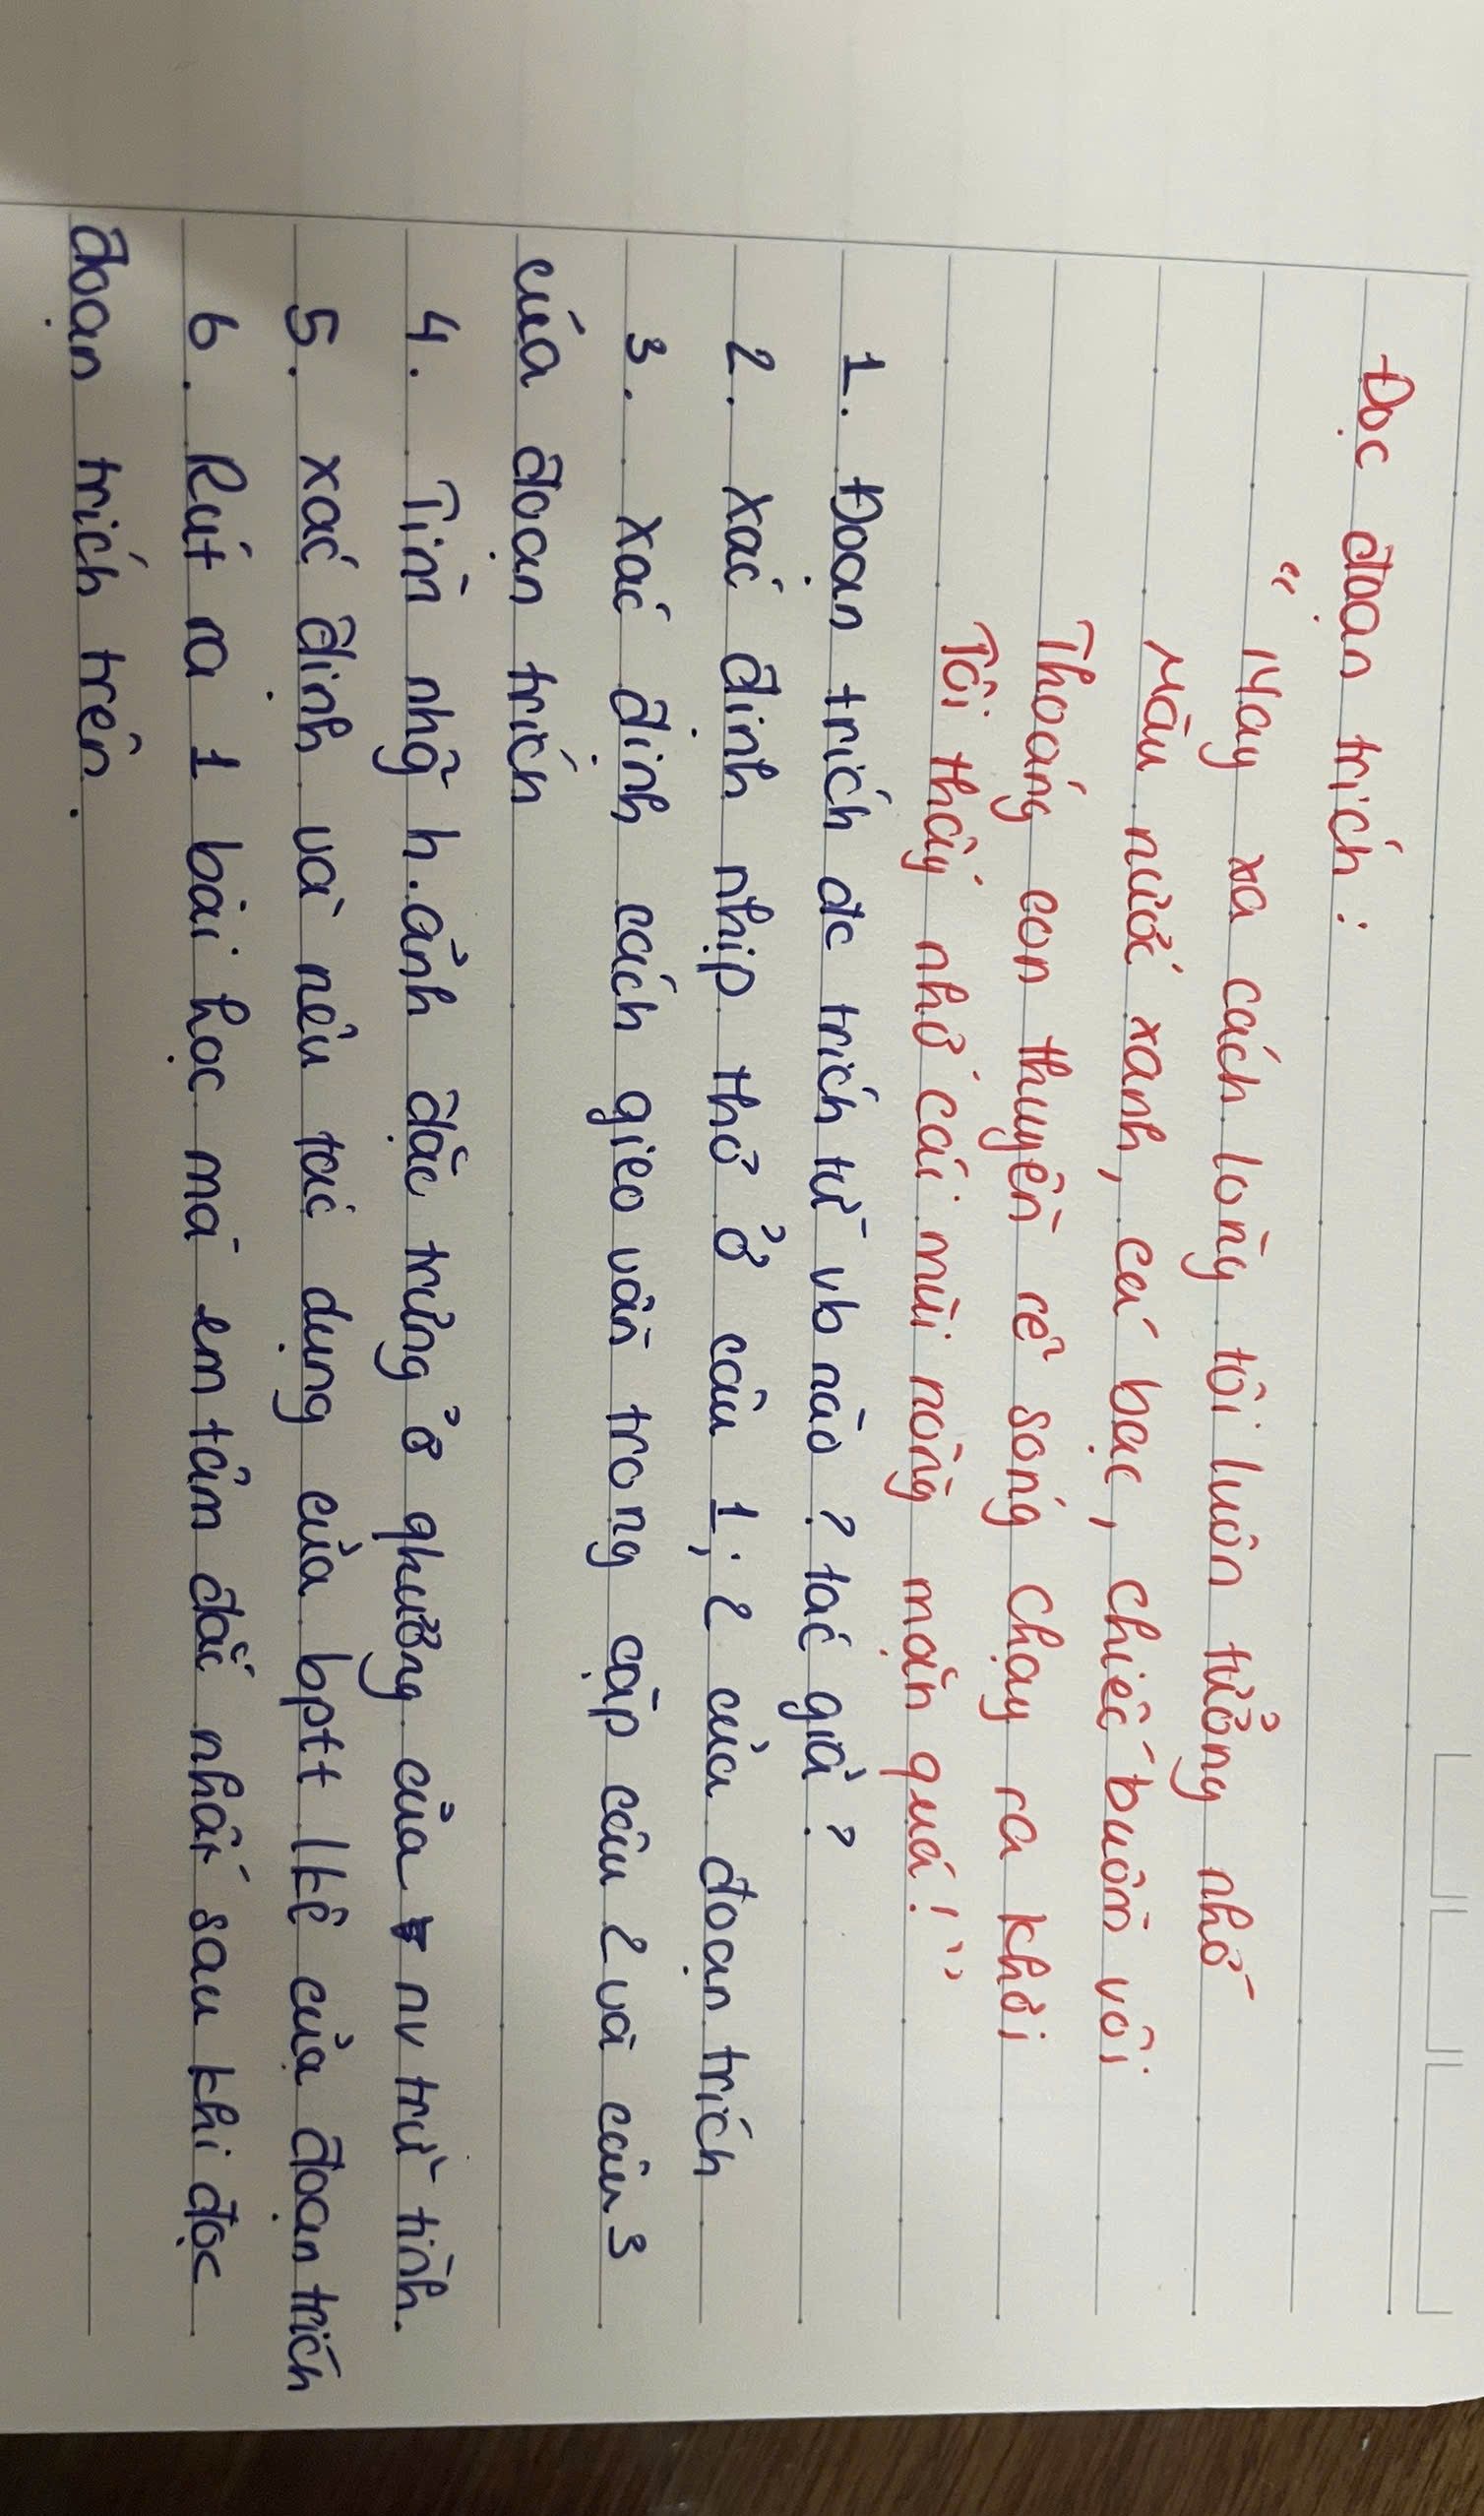 Đọc đoạn trích:
" Nay xa cách lòng tôi luôn tưởng nhớ
Màu nước xanh, cá bạc, chiếc buồm vôi
Thoáng con thuyền rẽ sóng chạy ra khơi
Tôi thấy nhớ cái mùi nồng mặn quá! "
1. Đoạn trích đc trích từ vb nào? tác giả?
2. xác định nhịp thơ ở câu 1; 2 của đoạn trích
3. xác định cách gieo vần trong cặp câu 2 và câu 3
của đoạn trích
4. Tìm nhg h.ảnh đặc trưng ở qhương của nv trữ tình.
5. xác định và nêu tác dụng của bptt lkê của đoạn trích
6. Rút ra 1 bài học mà em tâm đắc nhất sau khi đọc
đoạn trích trên.